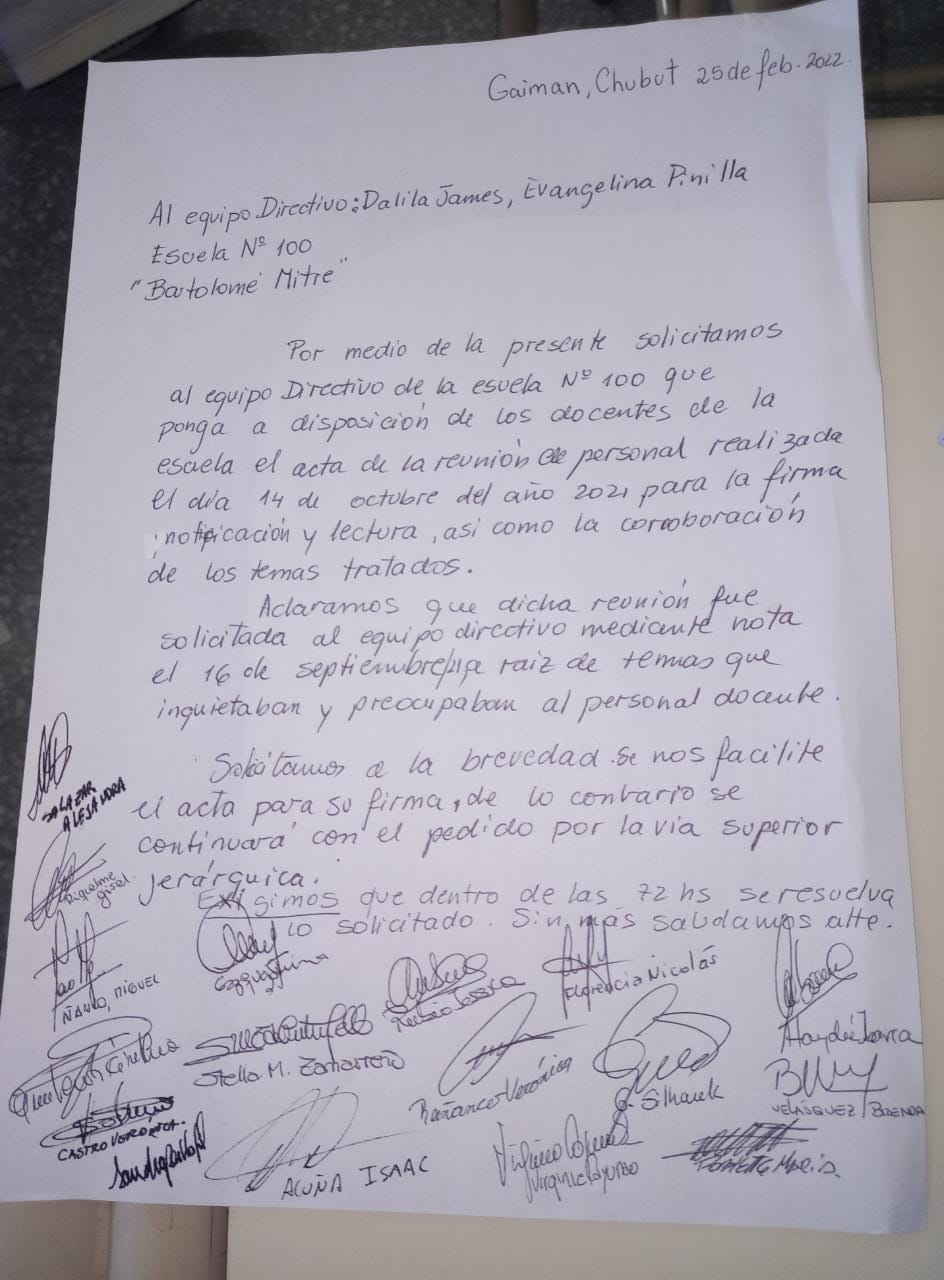 Gaiman, Chubut 25 de feb. 2022.
Al equipo Directivo: Dalila James, Evangelina Pinilla
Escuela Nº 100
"Bartolomé Mitre"
Por medio de la presente solicitamos
al equipo Directivo de la escuela Nº 100 que
ponga a disposición de los docentes de la
escuela el acta de la reunión de personal realizada
el día 14 de octubre del año 2021 para la firma
, notificación y lectura, así como la corroboración
de los temas tratados.
Aclaramos que dicha reunión fue
solicitada al equipo directivo mediante nota
el 16 de septiembre/21 a raiz de temas que
inquietaban y preocupaban al personal docente.
Solicitamos a la brevedad se nos facilite
el acta para su firma, de lo contrario se
continuará con el pedido por la vía superior
jerárquica.
Exigimos que dentro de las 72 hs se resuelva
lo solicitado. Sin más saludamos atte.
SALAZAR
ALEJANDRA
Riquelme
gisel.
ÑANCO, MIGUEL
Florencia Nicolás
Stella M. Zamarreño
Bañanco Verónica
Haydée Ibarra
VELÁSQUEZ BRENDA
CASTRO VERÓNICA.
ACUÑA ISAAC